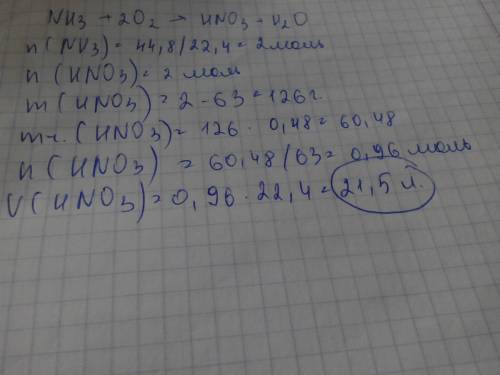 NH3 + 2O2 → HNO3 + H2O
n(NH3) = 44,8/22,4 = 2 моль
n(HNO3) = 2 моль
m(HNO3) = 2 · 63 = 126 г.
mч.(HNO3) = 126 · 0,48 = 60,48
n(HNO3) = 60,48/63 = 0,96 моль
V(HNO3) = 0,96 · 22,4 = 21,5 л.